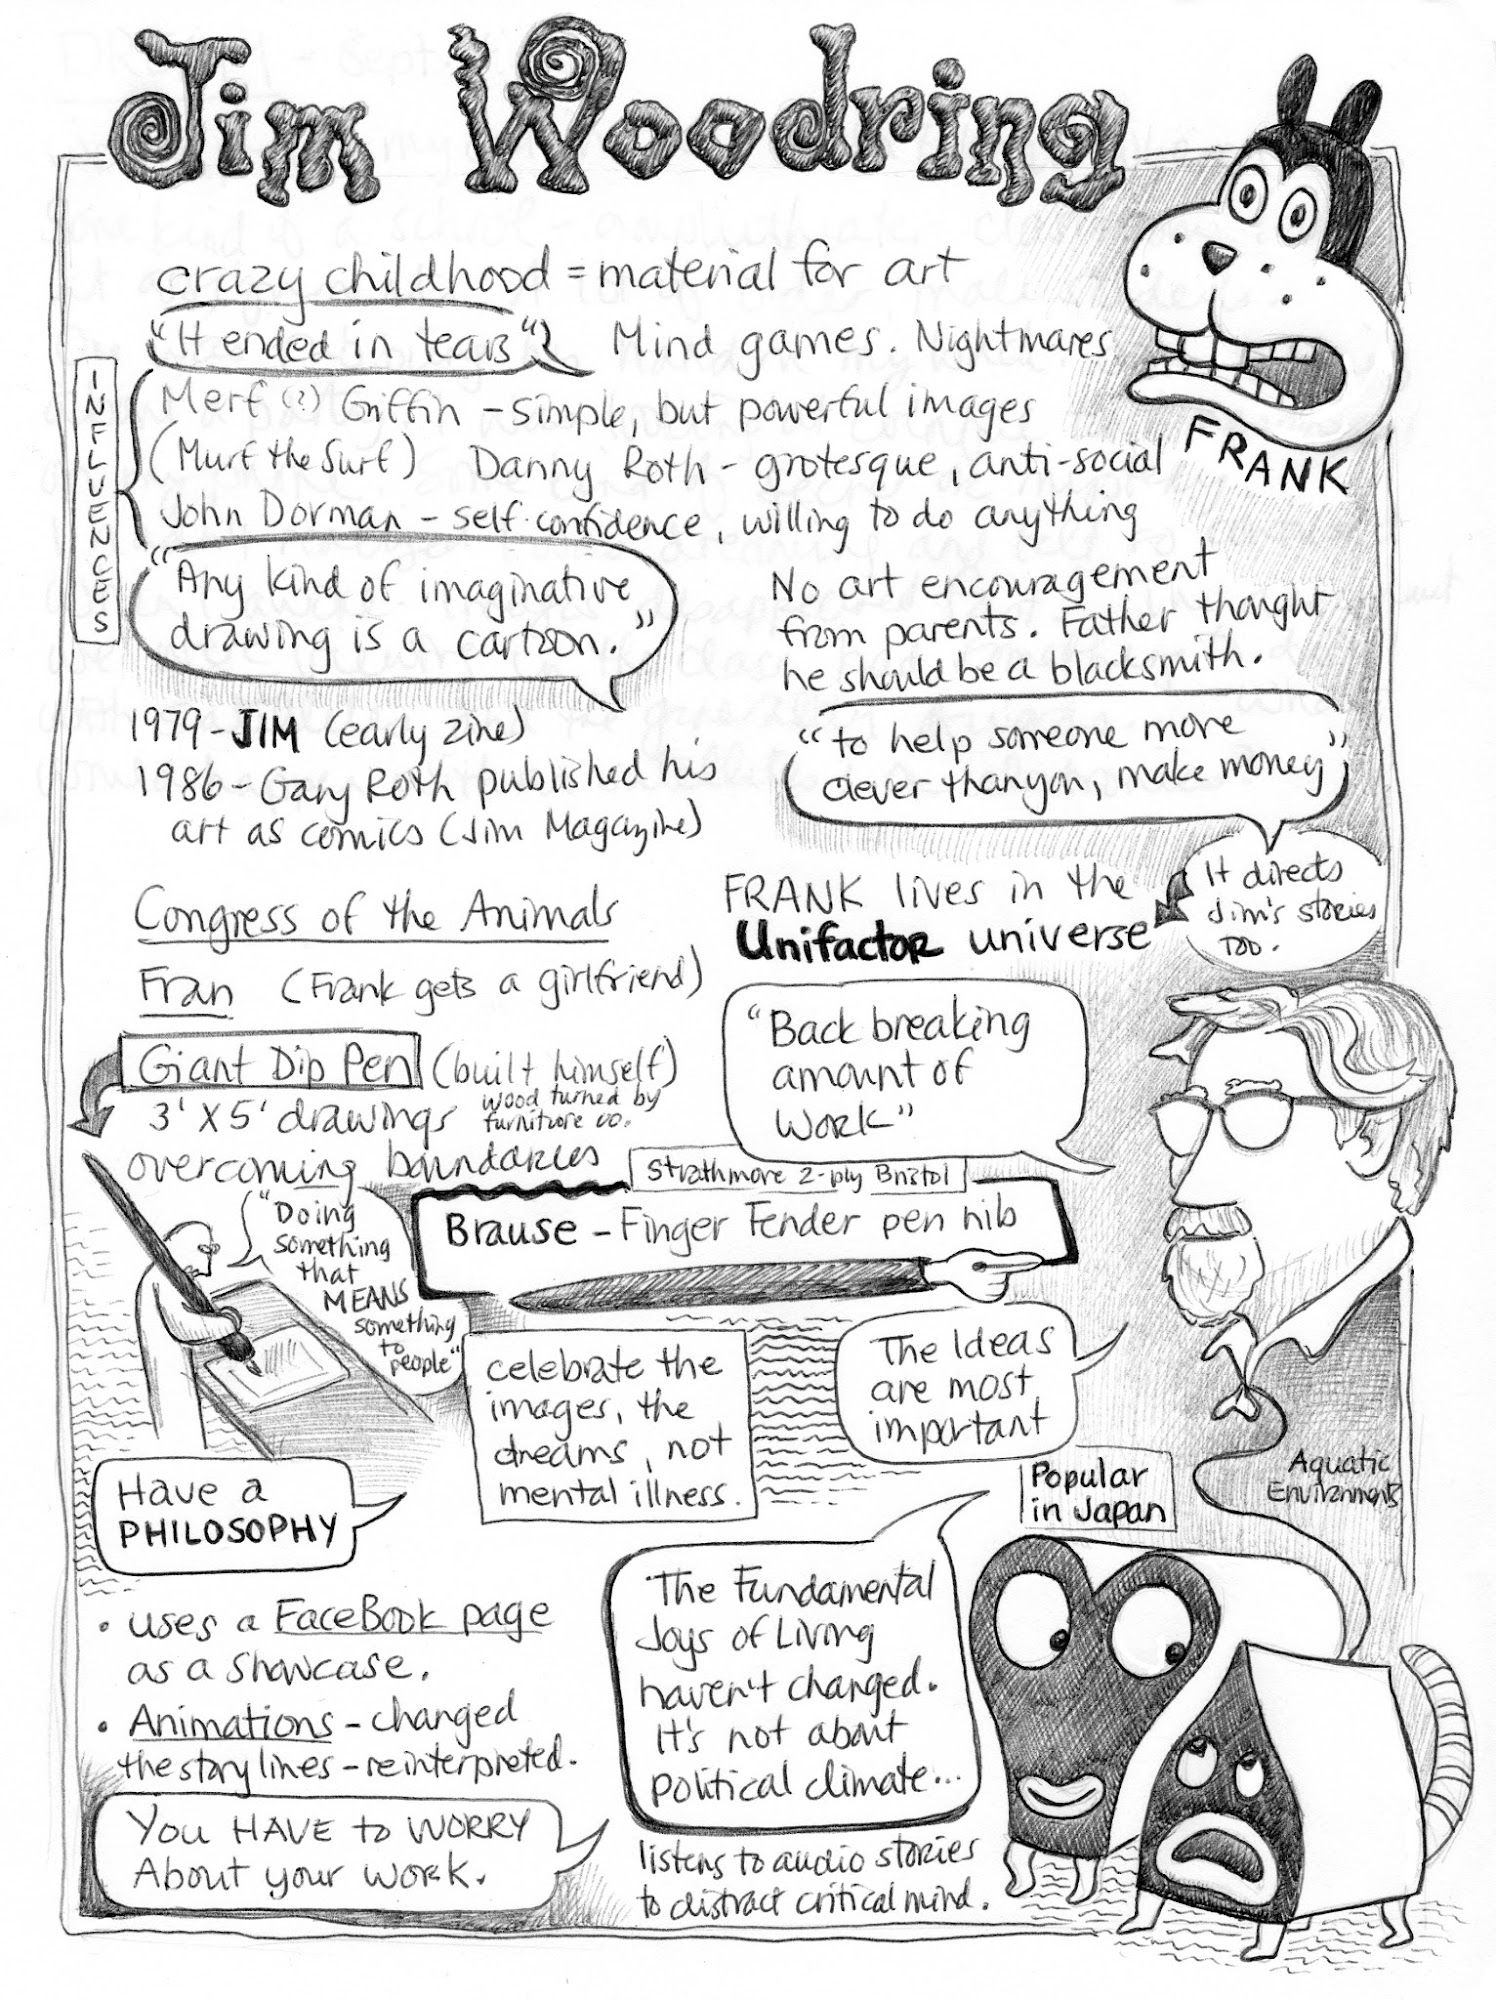 Jim Woodring
crazy childhood = material for art
"It ended in tears" Mind games. Nightmares
INFLUENCES
Merf (?) Griffin - simple, but powerful images
(Murf the Surf) Danny Roth - grotesque, anti-social
John Dorman - self-confidence, willing to do anything
FRANK
"Any kind of imaginative
drawing is a cartoon."
No art encouragement
from parents. Father thought
he should be a blacksmith.
1979 - JIM (early zine)
1986 - Gary Roth published his
art as comics (Jim Magazine)
"to help someone more
clever than you, make money"
FRANK lives in the
Unifactor universe
It directs
Jim's stories
too.
Congress of the Animals
Fran (Frank gets a girlfriend)
Giant Dip Pen (built himself)
wood turned by
furniture co.
3' x 5' drawings
overcoming boundaries
"Back breaking
amount of
work"
Strathmore 2-ply Bristol
Brause - Finger Fender pen nib
"Doing
something
that
MEANS
something
to
people"
celebrate the
images, the
dreams, not
mental illness.
The Ideas
are most
important
Have a
PHILOSOPHY
Popular
in Japan
Aquatic
Environments
• uses a FaceBook page
as a showcase.
• Animations - changed
the story lines - reinterpreted.
The Fundamental
Joys of Living
haven't changed.
It's not about
political climate...
You HAVE to WORRY
About your work.
listens to audio stories
to distract critical mind.